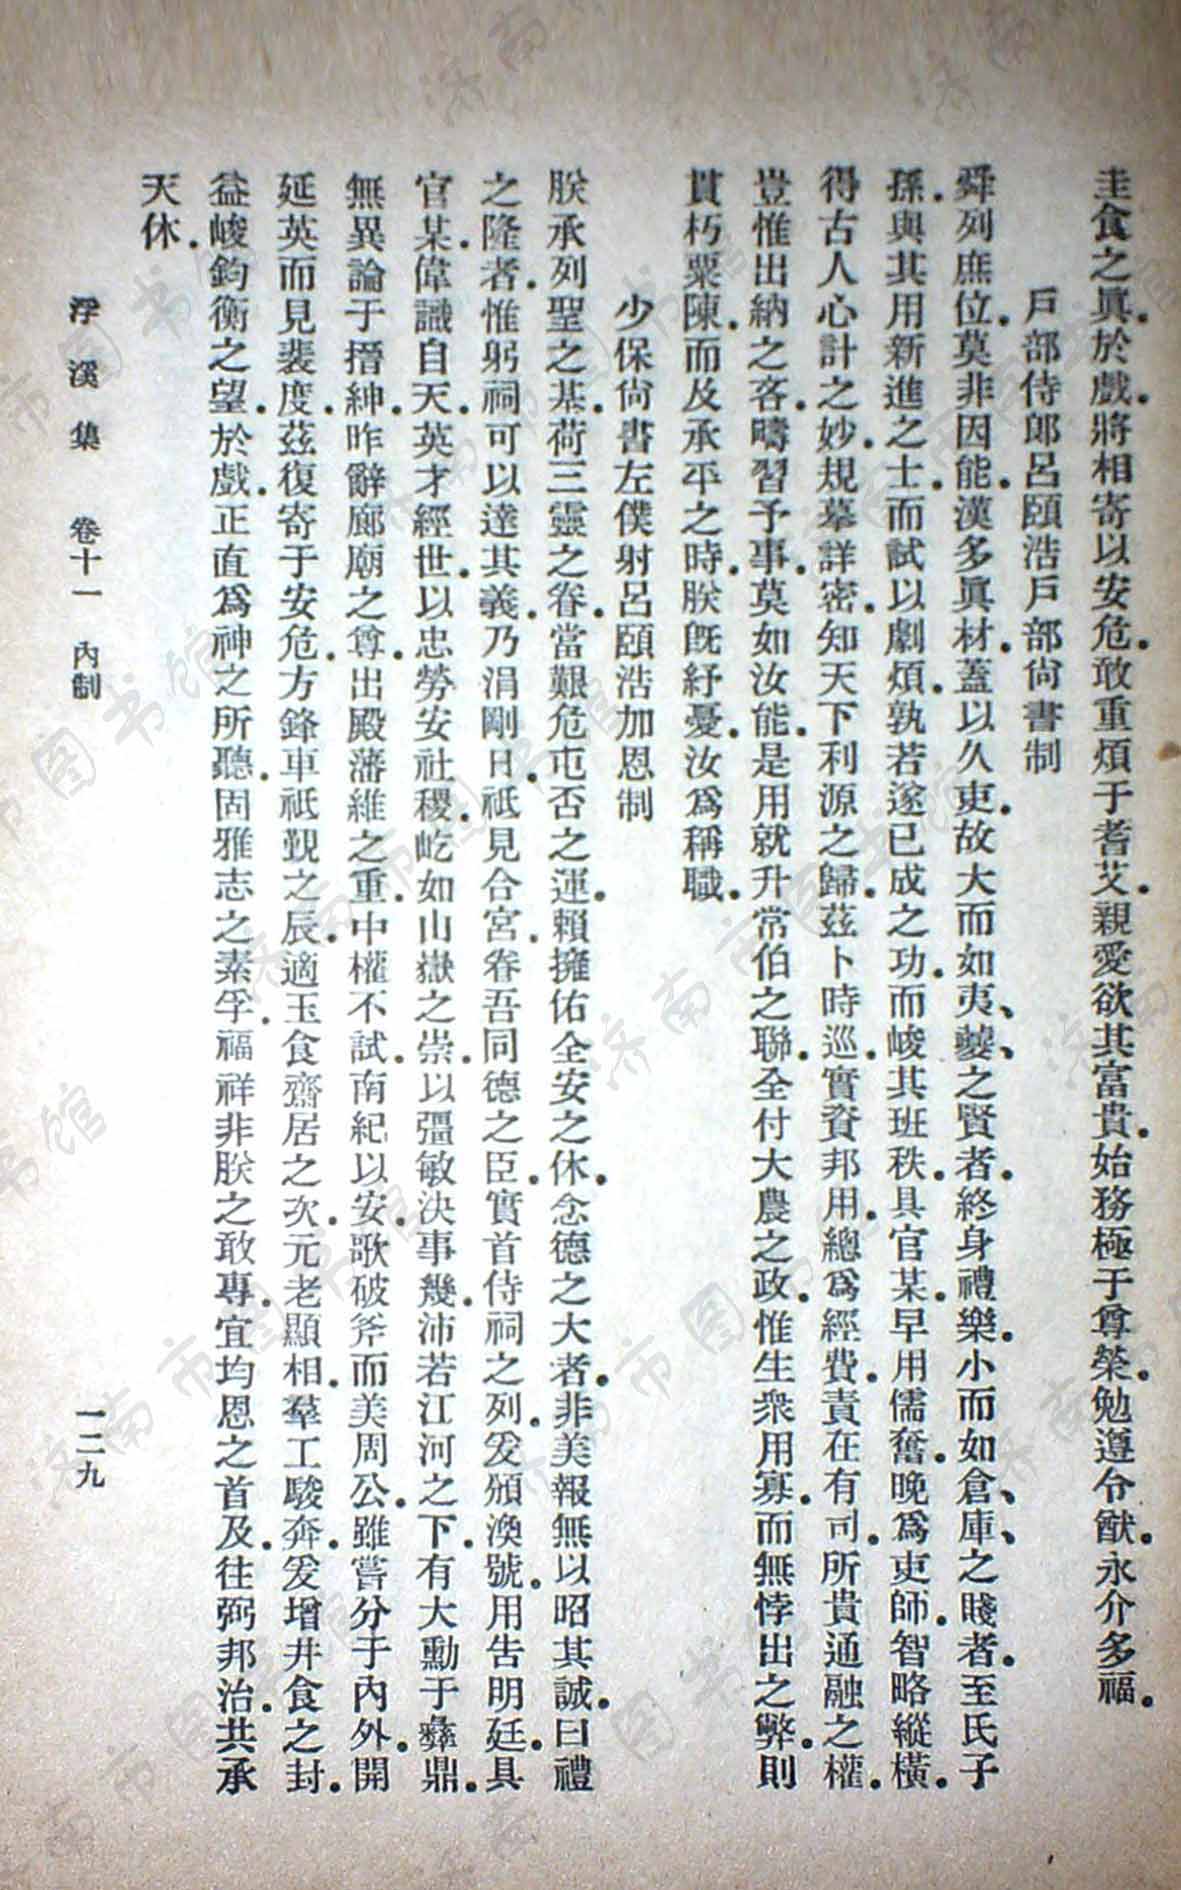 圭食之眞．於戲．將相寄以安危．敢重煩于耆艾．親愛欲其富貴．始務極于尊榮．勉遵令猷．永介多福．
戶部侍郎呂頤浩戶部尙書制
舜列庶位．莫非因能．漢多眞材．蓋以久吏．故大而如夷、夔之賢者．終身禮樂．小而如倉、庫之賤者．至氏子
孫．與其用新進之士．而試以劇煩．孰若遂已成之功．而峻其班秩．具官某．早用儒奮．晚爲吏師．智略縱橫．
得古人心計之妙．規摹詳密．知天下利源之歸．茲卜時巡．實資邦用．總爲經費．責在有司．所貴通融之權．
豈惟出納之吝．疇習予事．莫如汝能．是用就升常伯之聯．全付大農之政．惟生衆用寡．而無悖出之弊．則
貫朽粟陳．而及承平之時．朕旣紓憂．汝爲稱職．
少保尙書左僕射呂頤浩加恩制
朕承列聖之基．荷三靈之眷．當艱危屯否之運．賴擁佑全安之休．念德之大者．非美報無以昭其誠．曰禮
之隆者．惟躬祠可以達其義．乃涓剛日．祗見合宮．眷吾同德之臣．實首侍祠之列．爰頒渙號．用告明廷．具
官某．偉識自天．英才經世．以忠勞安社稷．屹如山嶽之崇．以彊敏決事幾．沛若江河之下．有大勳于彝鼎．
無異論于搢紳．昨辭廊廟之尊．出殿藩維之重．中權不試．南紀以安．歌破斧而美周公．雖嘗分于內外．開
延英而見裴度．茲復寄于安危．方鋒車祗覲之辰．適玉食齋居之次．元老顯相．羣工駿奔．爰增井食之封．
益峻鈞衡之望．於戲．正直爲神之所聽．固雅志之素孚．福祥非朕之敢專．宜均恩之首及．往弼邦治．共承
天休．
浮溪集 卷十一 內制 一二九